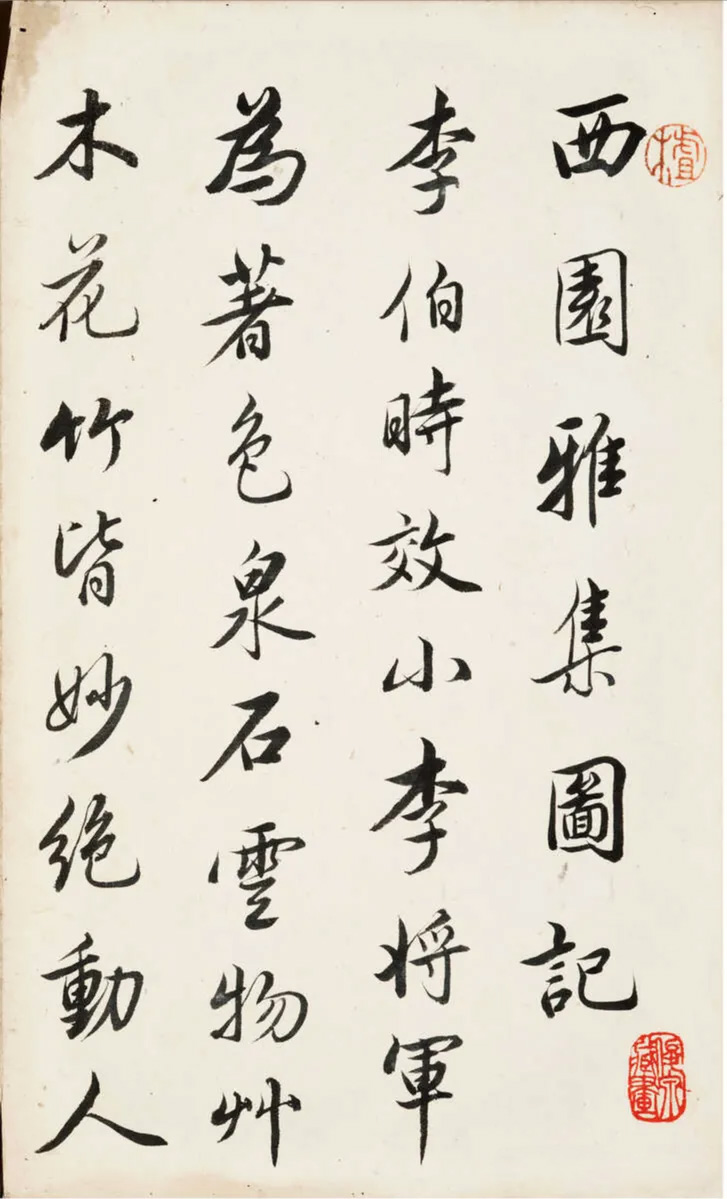 西園雅集圖記
李伯時效小李將軍
為著色泉石雲物艸
木花竹皆妙絶動人